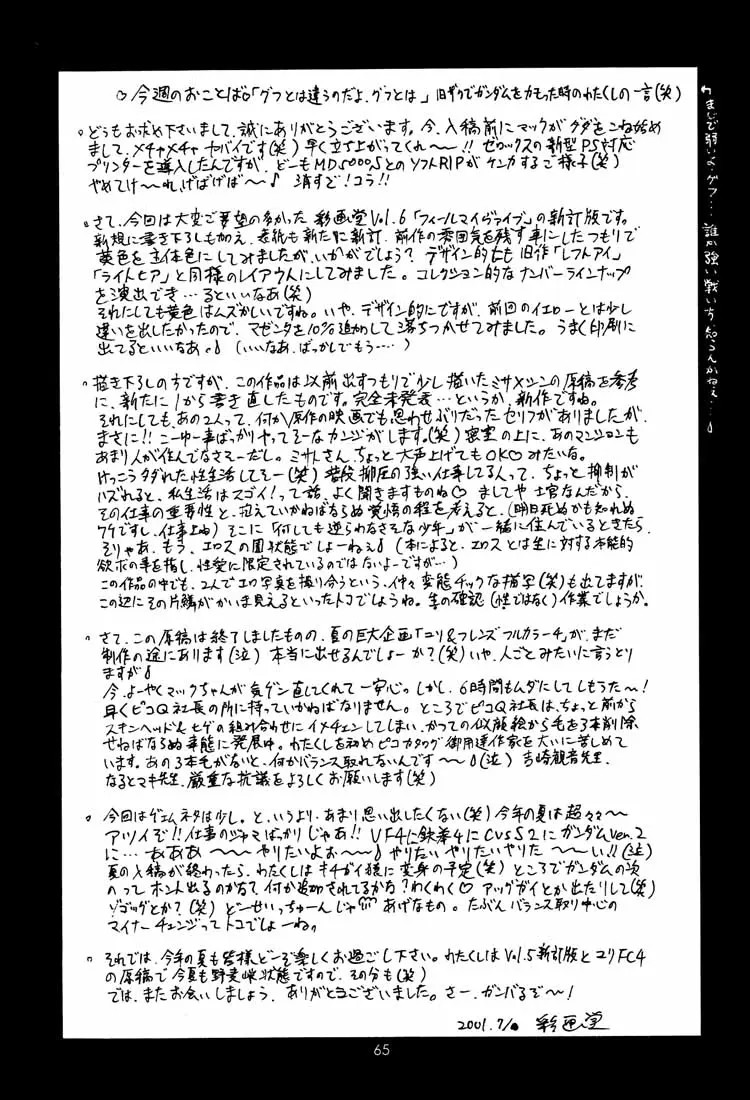 ♡今週のおことば♡「グフとは違うのだよ、グフとは」旧ザクでガンダムをカモった時のわたくしの一言(笑)
↰まじで弱いく・・グフ・・・。誰か強い戦い方知らんかねえ・・・♪
。どうもお求め下さいまして、誠にありがとうございます。今、入稿前にマックがグダをこね始め
まして、メチャメチャ ヤバイです(笑) 早く立ち上がってくれ〜〜!! ゼロックスの新型PS対応
プリンターを導入したんですが、どーもMD5000,5とのソフトRIPがケンカするご様子(笑)
やめてけ〜れ、げばげば〜♪ 消すど!コラ!!
。さて、今回は大変ご要望の多かった 彩画堂Vol.6「フィールマイヴァイブ」の新訂版です。
新規に書き下ろしも加え、表紙も新たに新訂、前作の雰囲気を残す事にしたつもりで
黄色を主体色にしてみましたが、いかがでしょう? デザイン的にも旧作「レフトアイ」
「ライトヒア」と同様のレイアウトにしてみました。コレクション的なナンバーラインナップ
を演出でき・・・るといいなあ(笑)
それにしても黄色はムズかしいですね。いや、デザイン的にですが、前回のイエローとは少し
違いを出したかったので、マゼンタを10%追加して落ちつかせてみました。うまく印刷に
出てるといいなあ。♪ (いいなあ、ばっかしでもう・・・・)
。描き下ろしのちですが、この作品は以前出すつもりで少し描いたミサ×シンの原稿を参考
に、新たに1から書き直したものです。完全未発表・・・というか、新作ですね。
それにしても、あの2人って、何か原作の映画でも思わせぶりだったセリフがありましたが、
まさに!!こーゆー事ばっかりヤってそーなカンジがします。(笑) 密室の上に、あのマンションも
あまり人が住んでなさそーだし。ミサトさん、ちょっと大声上げてもOK♡みたいな。
けっこうタダれた性生活してそー(笑) 普段 抑圧の強い仕事してる人って、ちょっと抑制が
ハズれると、私生活はスゴイ!って話、よく聞きますものね♡ ましてや士官なんだから、
その仕事の重要性と、抱えていかねばならぬ覚悟の程を考えると、(明日死ぬかも知れぬ
ワケですし、仕事上ね) そこに「何しても逆らわなさそな少年」が一緒に住んでいるときたら、
そりゃあ、もう、エロスの園状態でしょーねぇ♪ (本によると、エロスとは生に対する本能的
欲求の事を指し、性愛に限定されているのではないよーですが・・・)
この作品の中でも、2人でエロ写真を撮り合うという、仲々変態チックな描写(笑)も出てますが、
この辺にその片鱗がかいま見えるといったトコでしょうね。生の確認(性ではなく)作業でしょうか。
。さて、この原稿は終了しましたものの、夏の巨大企画「ユリ&フレンズ フルカラー4」が、まだ
制作の途にあります(泣) 本当に出せるんでしょーか?(笑) いや、人ごとみたいに言うとり
ますが♪
今、よーやくマックちゃんが気ゲン直してくれて一安心。しかし、6時間もムダにしてしもうた〜!
早くピコQ社長の所に持っていかねばなりません。ところでピコQ社長は、ちょっと前から
スキンヘッド&ヒゲの組み合わせにイメチェンしてしまい、かつての似顔絵から毛を3本削除
せねばならぬ事態に発展中。わたくしを初めピコカタログ御用達作家を大いに苦しめて
います。あの3本毛がないと、何かバランス取れないんです〜〜♪(泣) 吉崎観音先生、
なるとマキ先生、厳重な抗議をよろしくお願いします(笑)
。今回はゲェムネタは少し。と、いうより、あまり思い出したくない(笑) 今年の夏は超々々〜〜
アツイぞ!!仕事のジャマばっかりじゃあ!! VF4に鉄拳4にCVSS2にガンダムVer.2
に・・・ああああ〜〜〜やりたいよお〜〜♪ やりたいやりたいやりた〜〜い!!(泣)
夏の入稿が終わったら、わたくしはキチガイ猿に変身の予定(笑) ところでガンダムの次
のって ホント出るのかな? 何か追加されてるかな? わくわく♡ アッグガイとか出たりして(笑)
ゾゴックとか?(笑) どーせいっちゅーんじゃ あげなもの。たぶんバランス取り中心の
マイナーチェンジってトコでしょーね。
。それでは、今年の夏も皆様どーぞ楽しくお過ごし下さい。わたくしはVol.5新訂版とユリFC4
の原稿で今夏も野麦峠状態ですので、その分も(笑)
では、またお会いしましょう、ありがとうございました。さー、ガンバるぞ〜!
2001.7/。 彩画堂
65